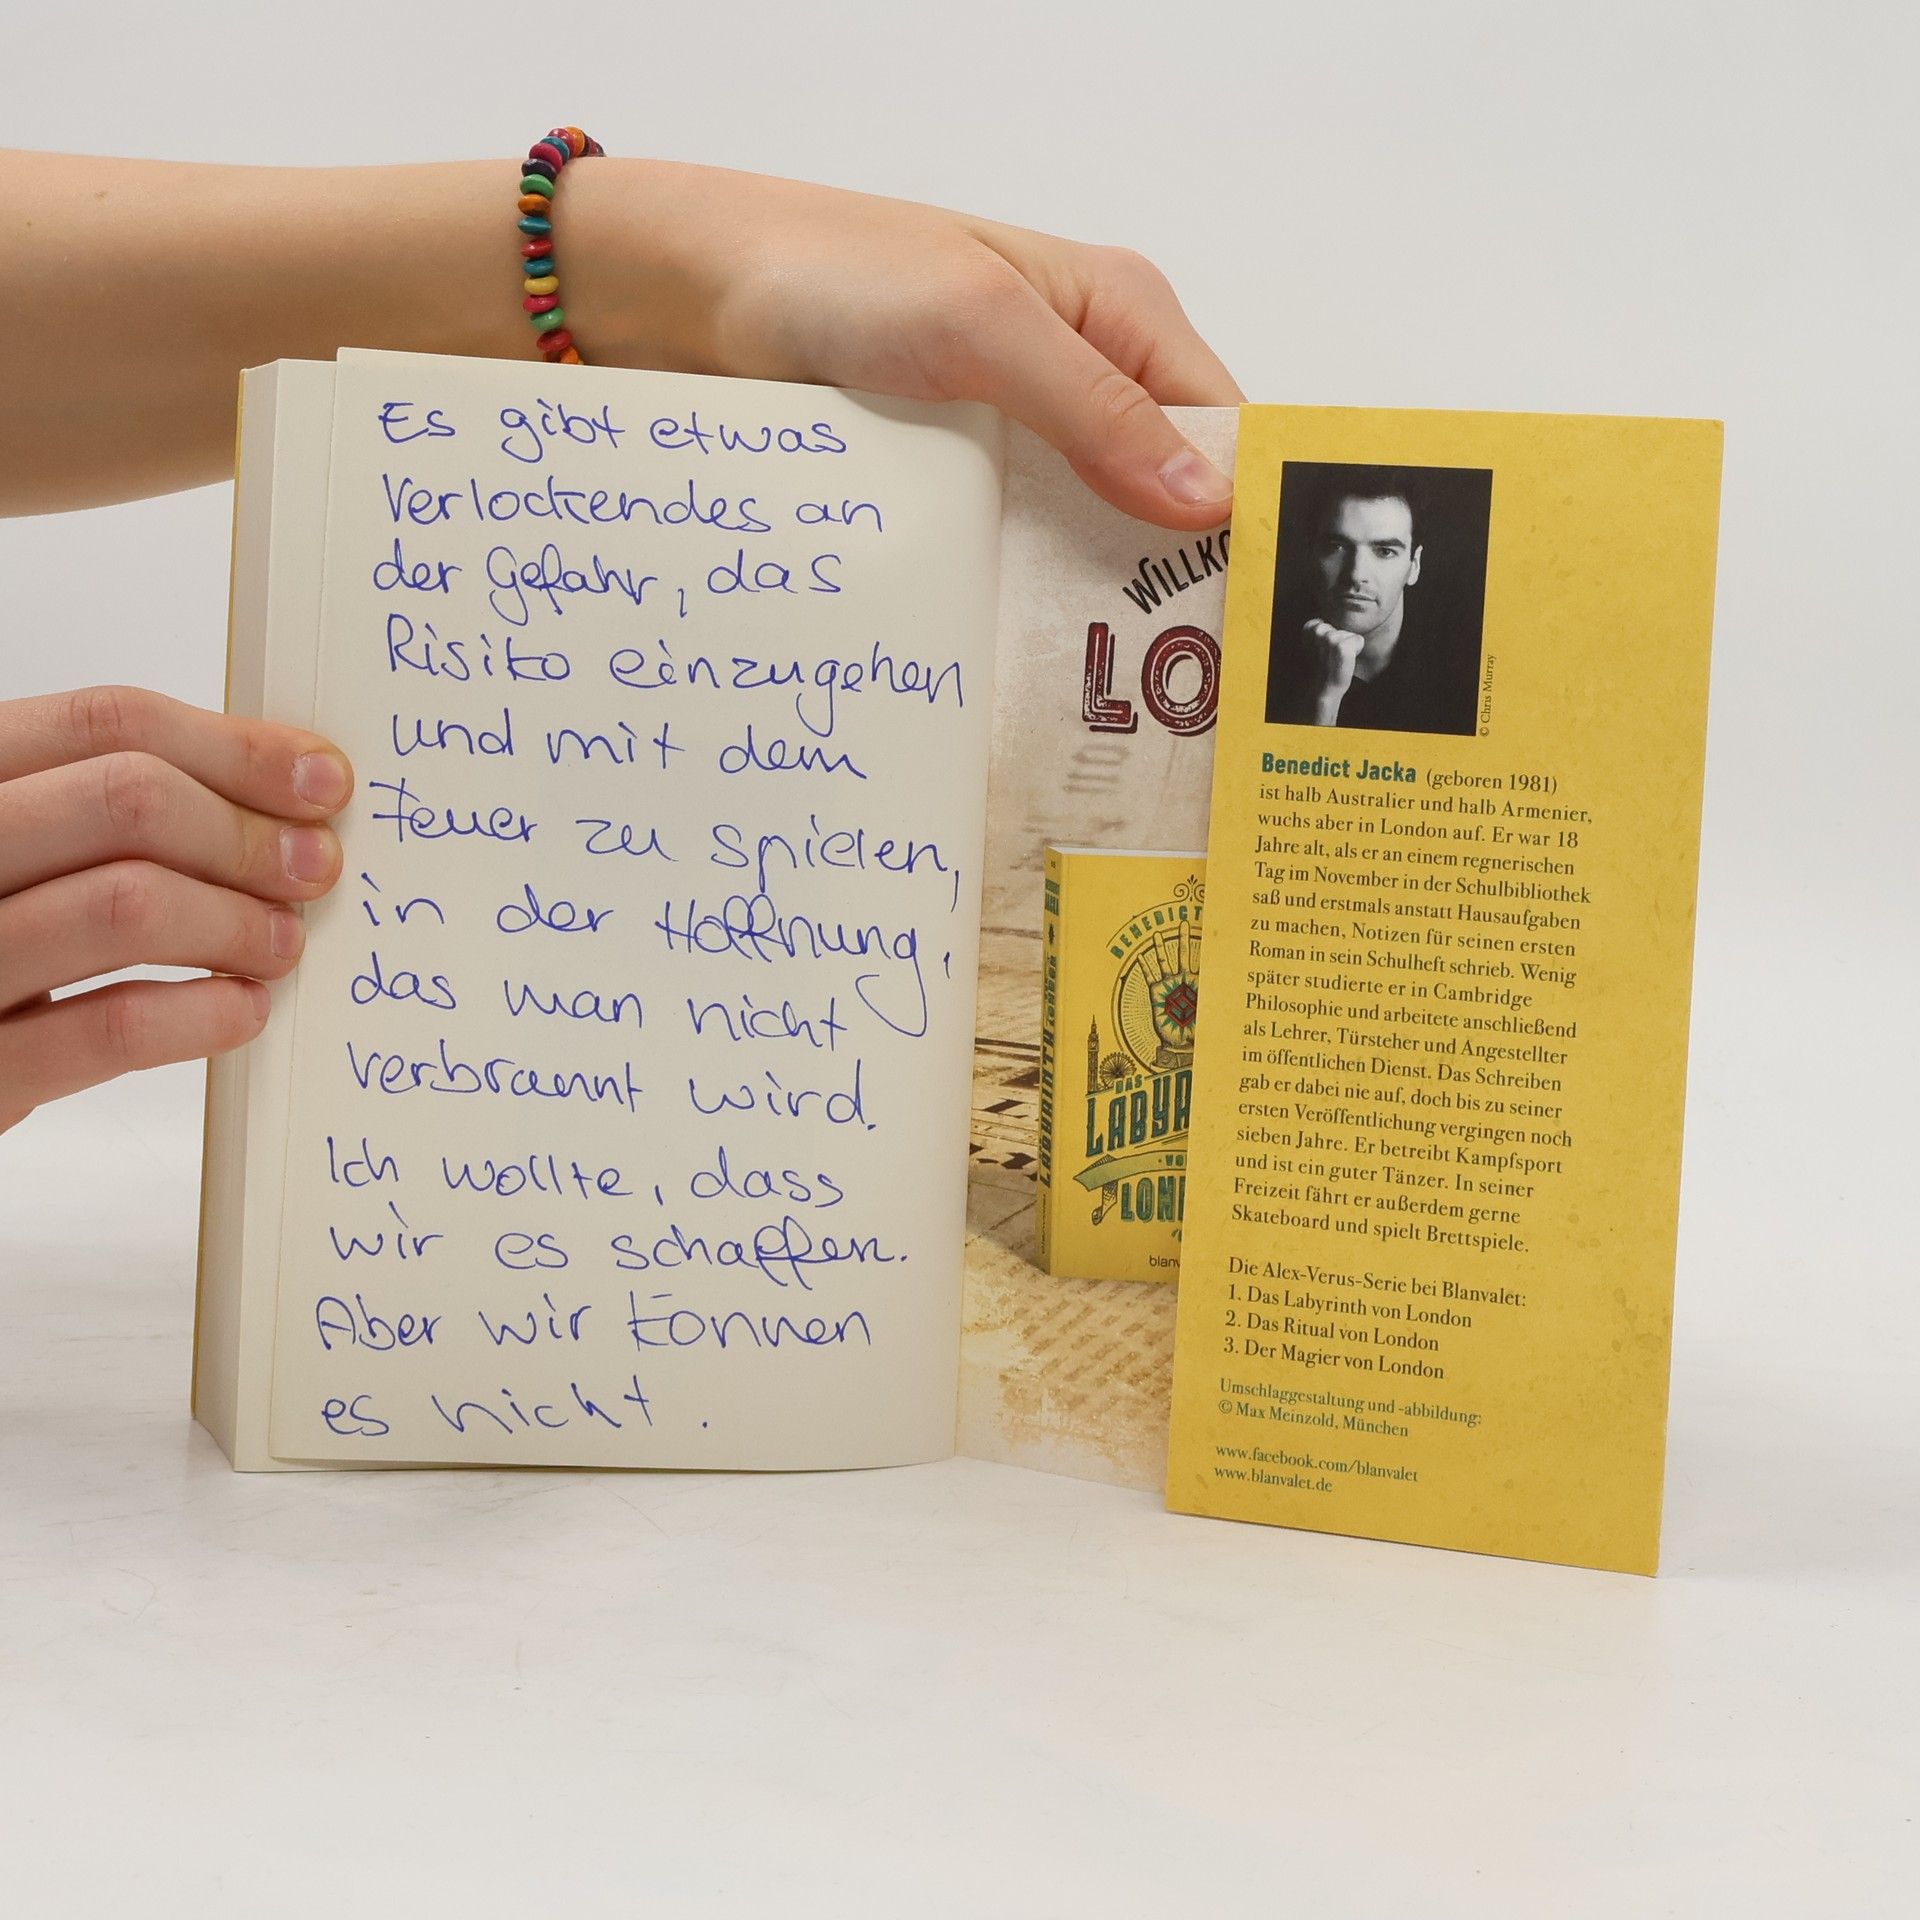 Es gibt etwas
Verlockendes an
der Gefahr, das
Risiko einzugehen
und mit dem
Feuer zu spielen,
in der Hoffnung,
das man nicht
verbrannt wird.
Ich wollte, dass
wir es schaffen.
Aber wir können
es nicht.
WILLKO
LO
BENEDICT
DAS
LABYR
VO
LON
blanv
LABYRINTH
LONDON
© Chris Murray
Benedict Jacka (geboren 1981)
ist halb Australier und halb Armenier,
wuchs aber in London auf. Er war 18
Jahre alt, als er an einem regnerischen
Tag im November in der Schulbibliothek
saß und erstmals anstatt Hausaufgaben
zu machen, Notizen für seinen ersten
Roman in sein Schulheft schrieb. Wenig
später studierte er in Cambridge
Philosophie und arbeitete anschließend
als Lehrer, Türsteher und Angestellter
im öffentlichen Dienst. Das Schreiben
gab er dabei nie auf, doch bis zu seiner
ersten Veröffentlichung vergingen noch
sieben Jahre. Er betreibt Kampfsport
und ist ein guter Tänzer. In seiner
Freizeit fährt er außerdem gerne
Skateboard und spielt Brettspiele.
Die Alex-Verus-Serie bei Blanvalet:
1. Das Labyrinth von London
2. Das Ritual von London
3. Der Magier von London
Umschlaggestaltung und -abbildung:
© Max Meinzold, München
www.facebook.com/blanvalet
www.blanvalet.de